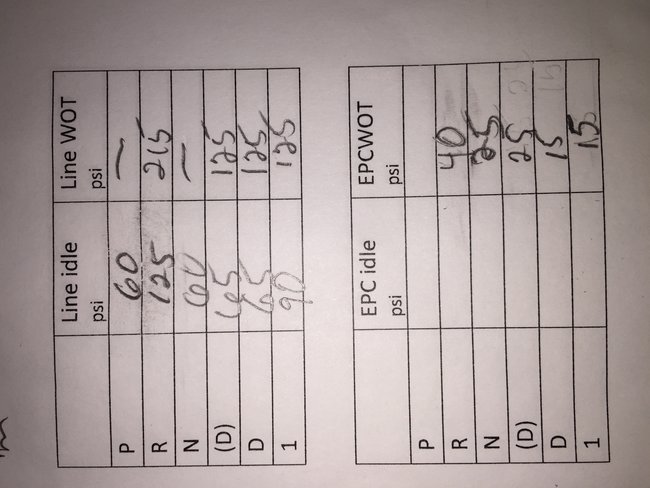 Line idle Line WOT
psi psi
P 60 —
R 125 215
N 60 —
(D) 65 125
D 65 125
1 90 125
EPC idle EPCWOT
psi psi
P
R 40
N 25
(D) 25
D 15
1 15